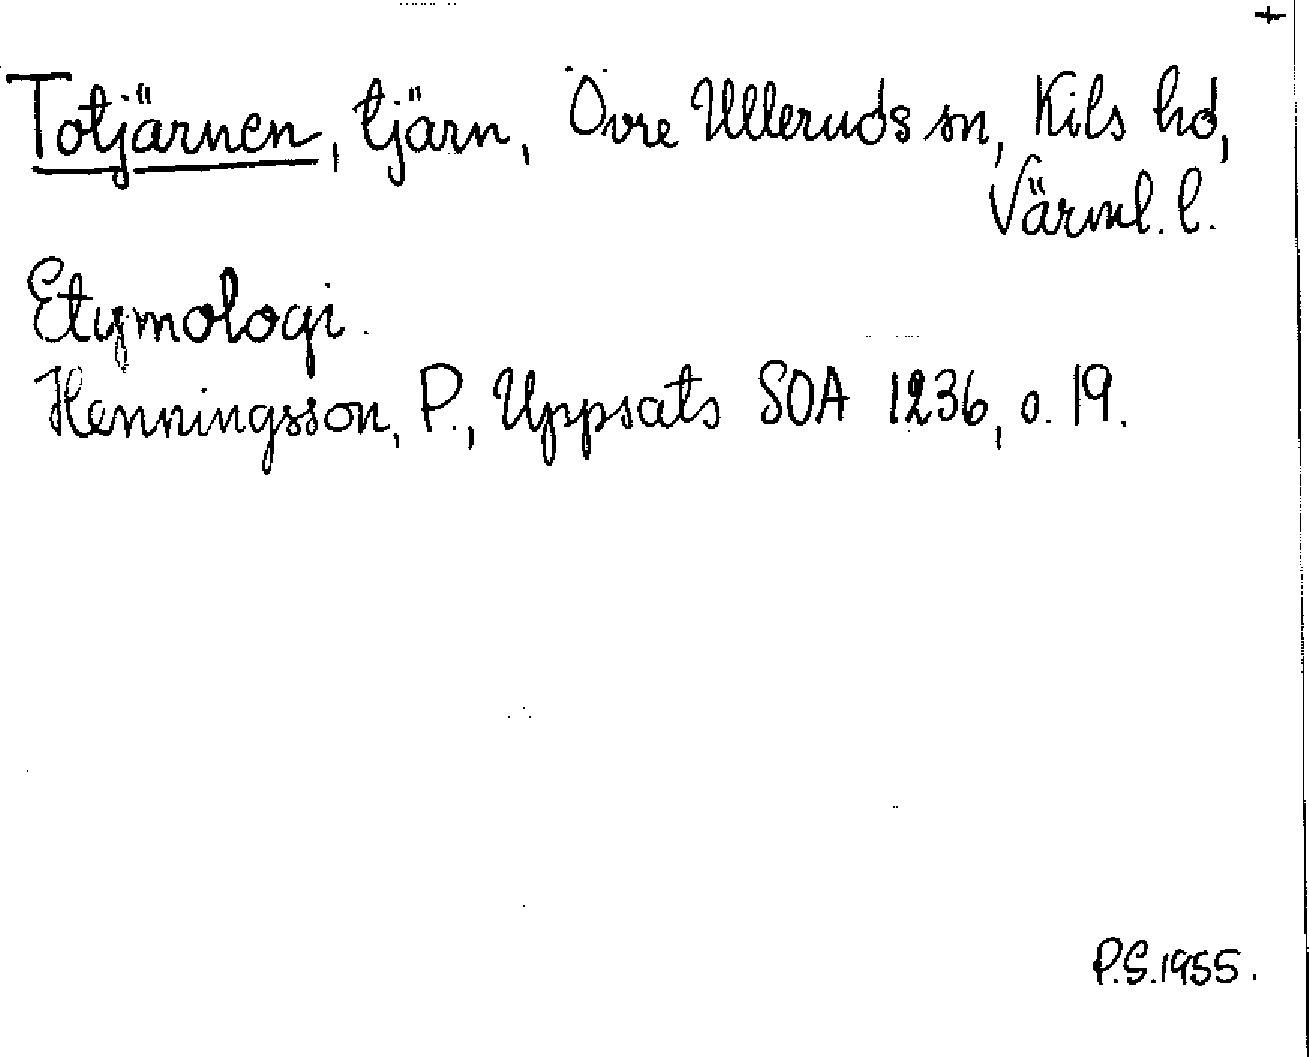 Totjärnen, tjärn, Övre Ulleruds sn, Kils hd,
Värml. l.
Etymologi.
Henningsson, P., Uppsats SOA 1236, s. 19.
P.S. 1955.